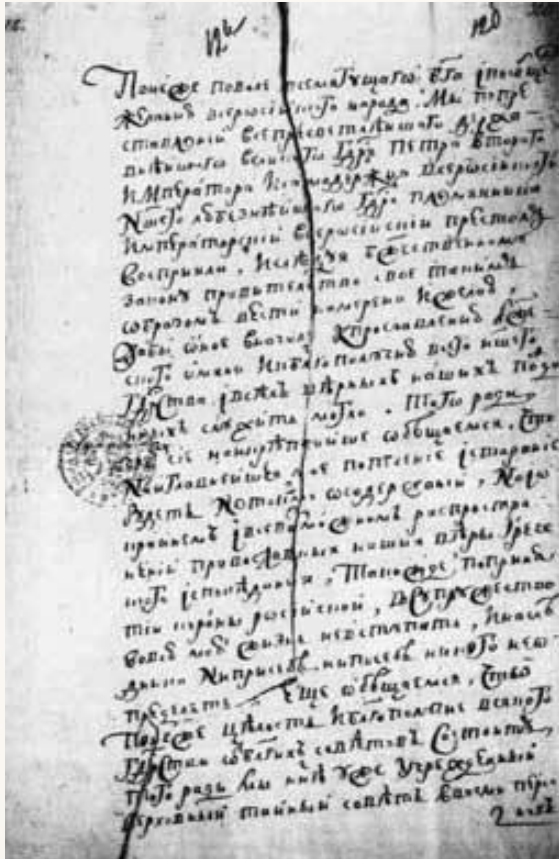 126 120
Понеже по воле всемогущаго бга ипообще
желанию всеросийского народа. Мы попре
ставлении всепресветлеишаго держа
внеишаго великаго гдря Петра второго
Императора исамодержца всеросийского
Нашего любезнеишаго гдря племянника
Императорский всеросийский престолъ
восприяли, Иследуя бжественному
закону правительство свое такимъ
образомъ вести намерена ижелаю,
Дабы оное вначале кпрославлению бже
ского имени Икблагополучию всего нашего
гдрства, ивсехъ верныхъ нашихъ подда
нныхъ служить могло. Того ради,
чрез сие наикрепчайше обещаемся, что
Наиглавнейшее мое попечение истарание
будетъ нетокмо осодержании, Нои
крайнемъ ивсевозможномъ распростра
нении православныя нашея веры Грече
скаго исповедания, Такожде поприня
тии короны росийской, Всупружество
вовсю мою жизнь невступать, Инасле
дника Нипри себе, нипосебе никого неопре
пределять. Еще обещаемся, что
Понеже целость Иблагополучие всякаго
гдрства отблагихъ советовъ состоитъ,
Того ради мы ныне уже учрежденный
верховный тайный советъ ввосми персо